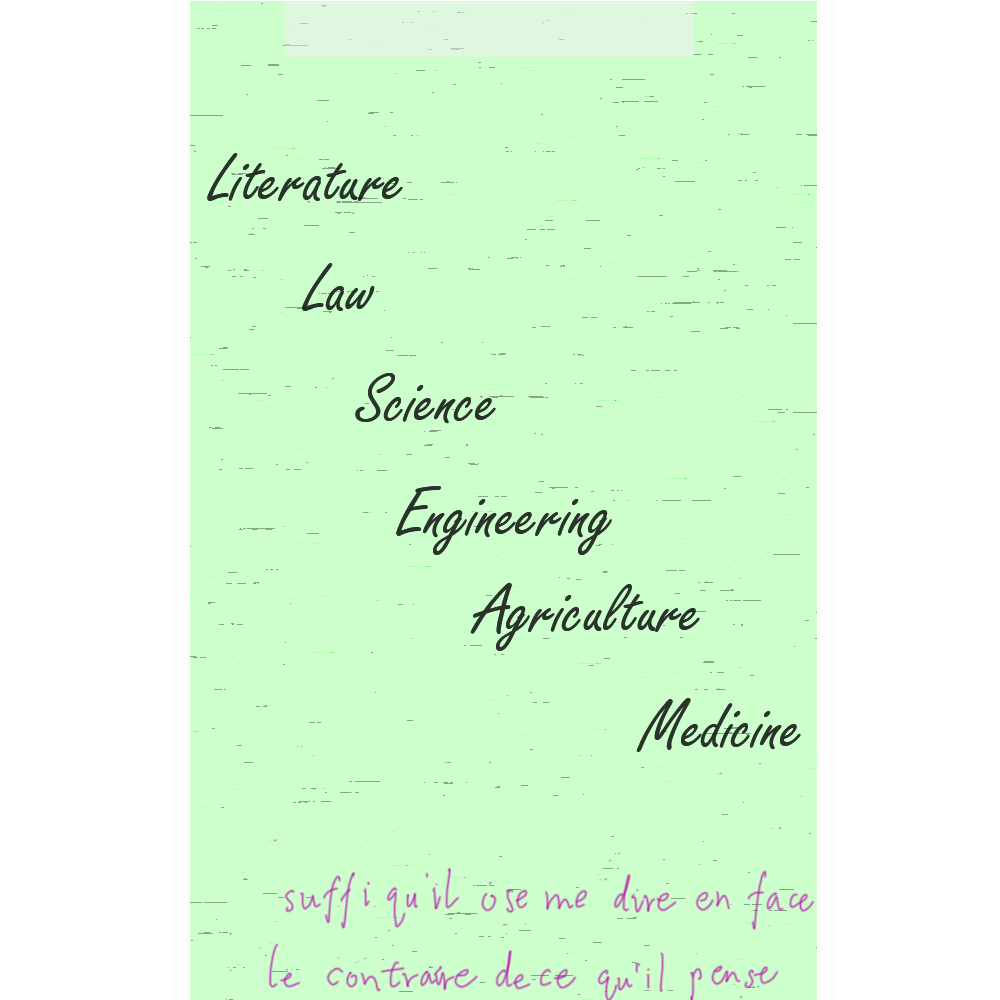 Literature
Law
Science
Engineering
Agriculture
Medicine
suffi qu'il ose me dire en face
le contraire de ce qu'il pense